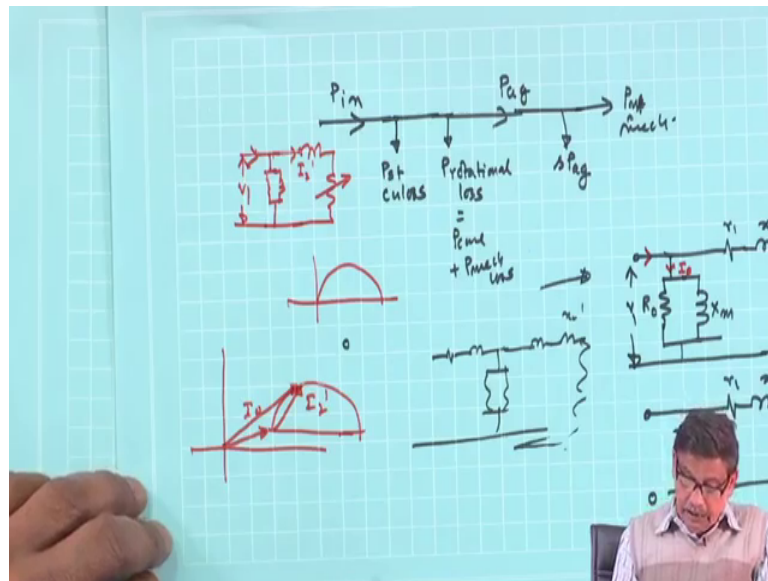 Pin
Pag
mech.
Pst
cu loss
Protational
loss
=
Pcore
+ Pmech
loss
sPag
V1
I2'
r1
I0
R0
Xm
V
I2'
r1